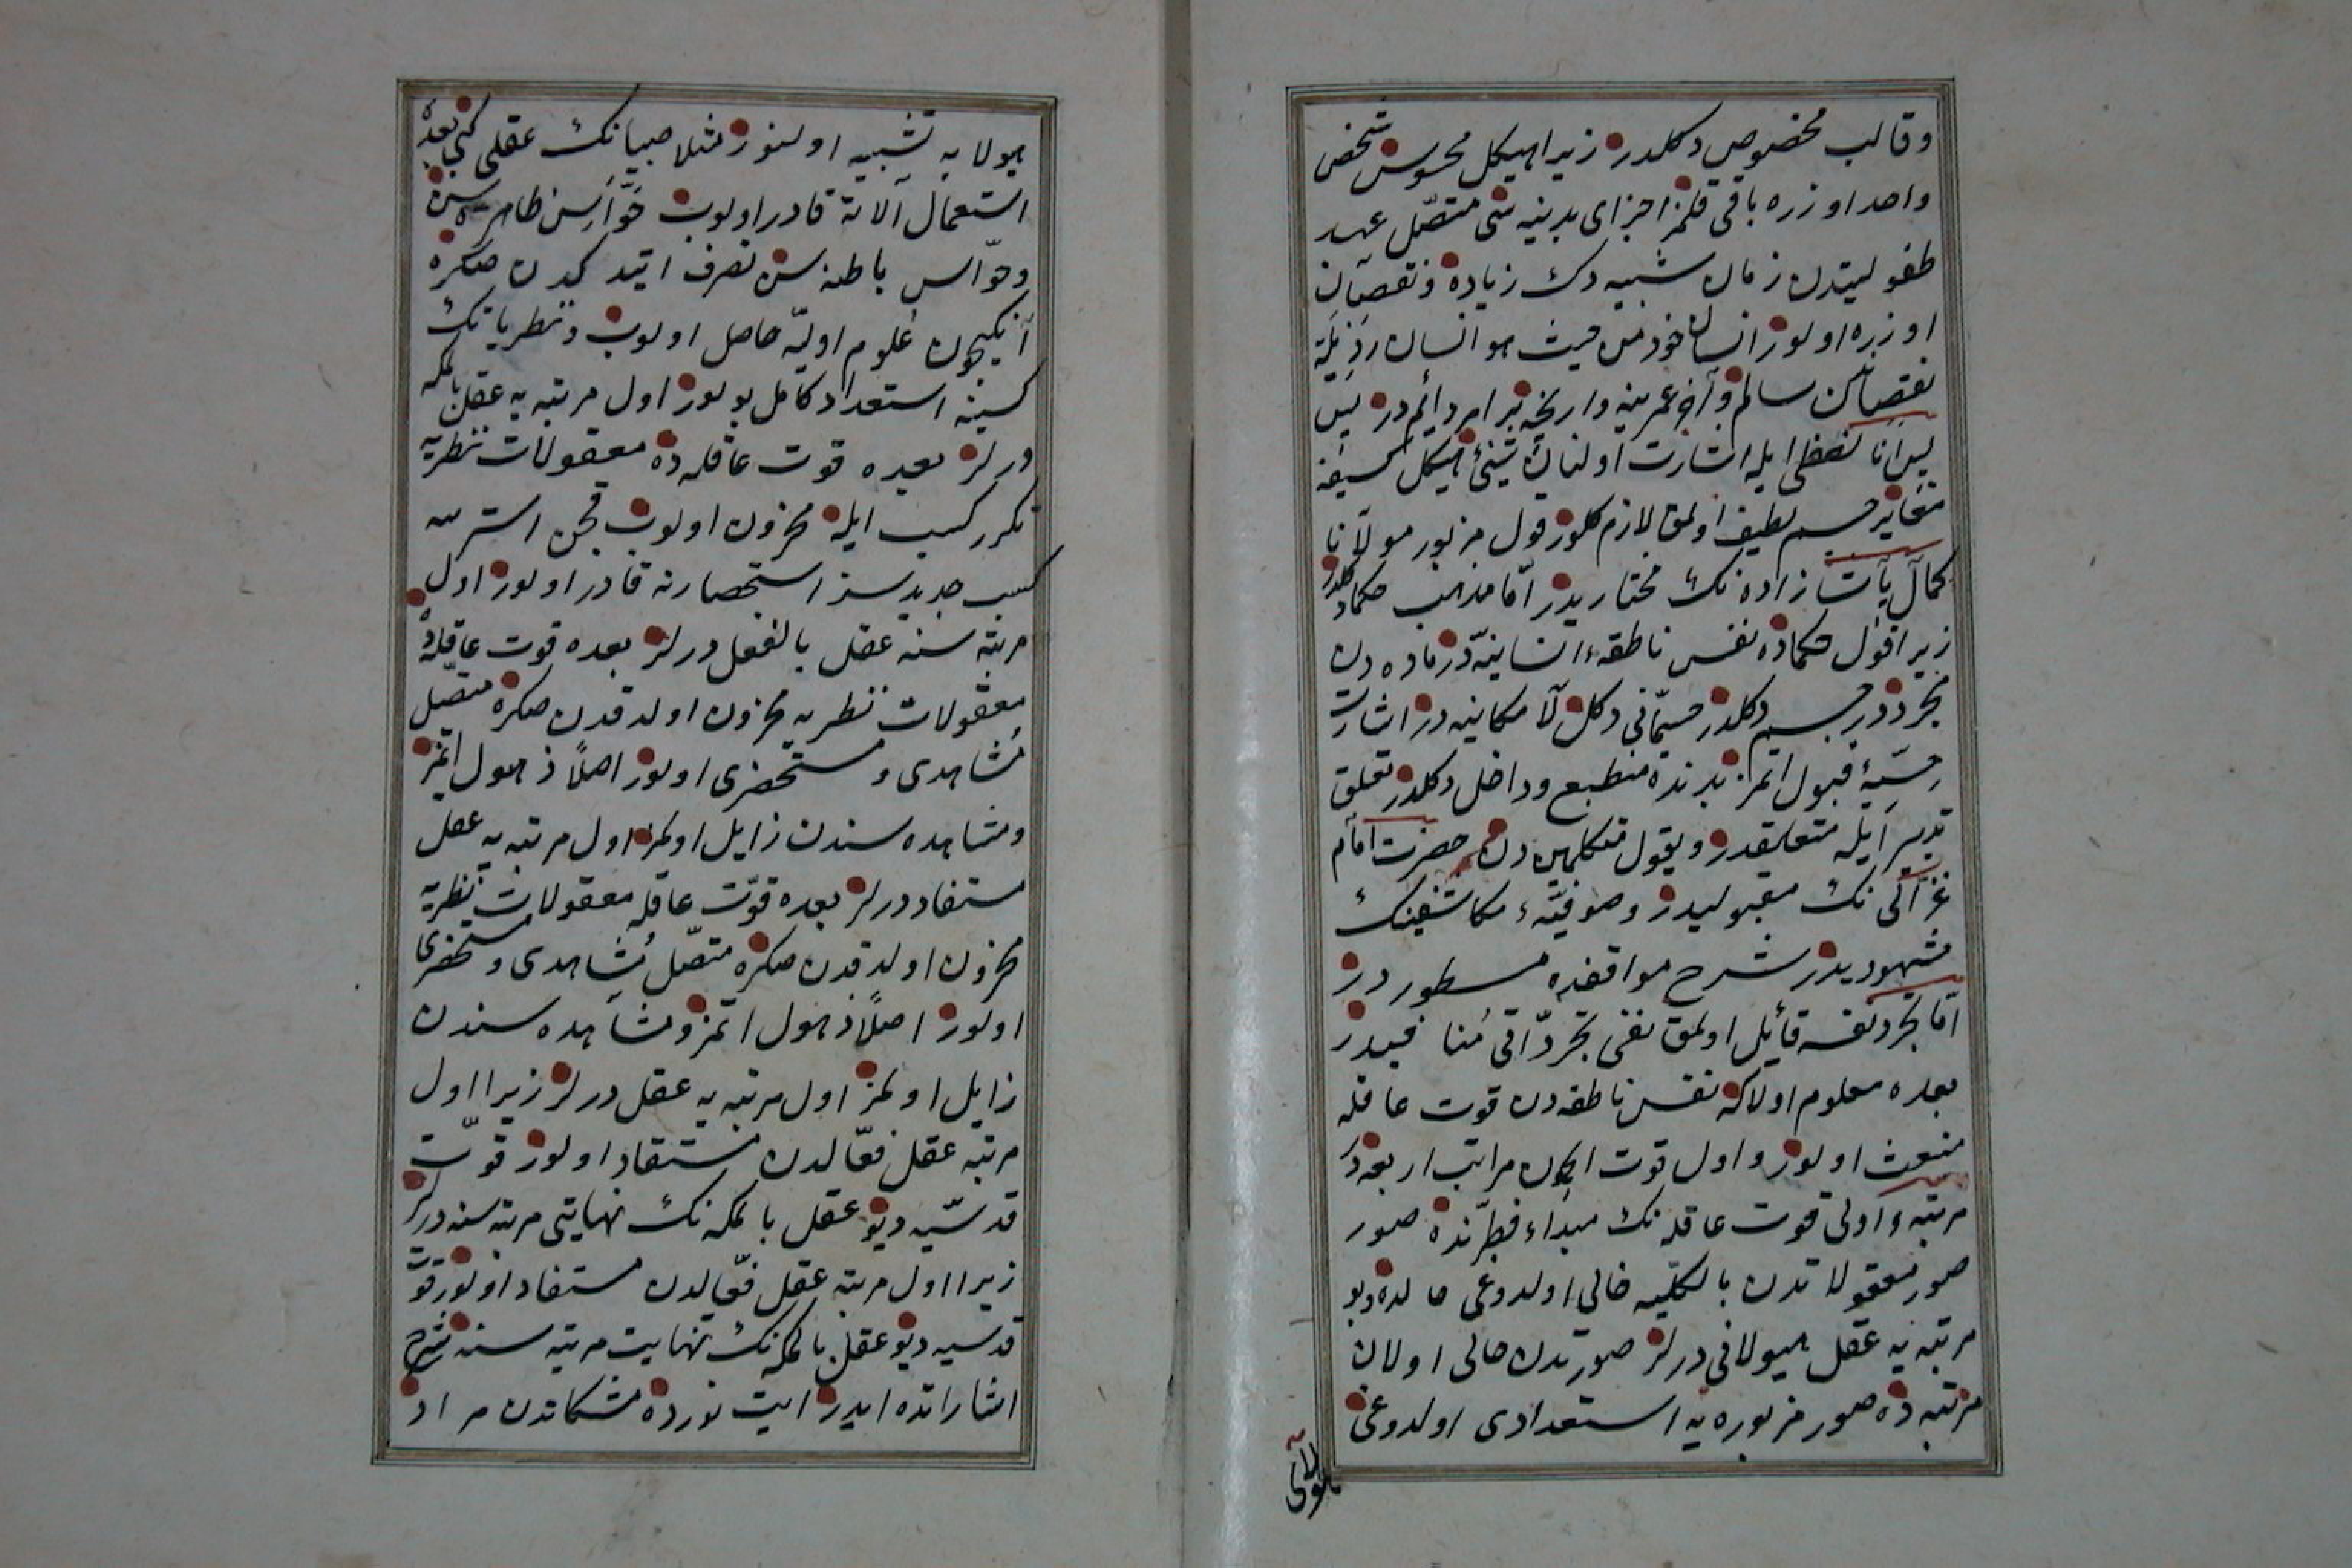 وقالب مخصوص دكلدر زيرا هيكل محسوس شخص
واحد اوزره باقى قلمز اجزاى بدنيه سى متصل عهد
طفوليتدن زمان شيبه دك زياده ونقصان
اوزره اولور انسان خود من حيث هو انسان رذيلة
نقصاندن سالم وآخر عمرينه وارنجه بر امر دائم در پس
پس انا لفظى ايله اشارت اولنان شيئ هيكل كثيفه
مغاير جسم لطيف اولمق لازم كلور قول مزبور مولانا
كمال پاشا زاده نك مختاريدر اما مذهب حكما دكلدر
زيرا قول حكماده نفس ناطقهء انسانيه در ماده دن
مجرد در جسم دكلدر جسمانى دكل لا مكانيه در اشارت
حسيه قبول اتمز بدنده منطبع وداخل دكلدر تعلق
تدبير ايله متعلقدر وبقول متكلمين دن حضرت امام
غزالى نك مقبوليدر وصوفيهء مكاشفينك
مشهوديدر شرح مواقفده مسطور در
اما تجرد نفسه قائل اولمق نفى تجرد اقى منافيدر
بعده معلوم اولاكه نفس ناطقه دن قوت عاقله
منبعث اولور واول قوت ايچون مراتب اربعه در
مرتبهء اولى قوت عاقله نك مبداء فطرتنده صور
صور معقولاتدن بالكليه خالى اولدوغى حالده وبو
مرتبه يه عقل هيولانى درلر صورتدن خالى اولان
مرتبه ده صور مزبوره يه استعدادى اولدوغى
هيولايه تشبيه اولنور مثلا صبيانك عقلى كبى بعده
استعمال آلاته قادر اولوب حواس ظاهره سن
وحواس باطنه سن تصرف ايتدكدن صكره
آنكيچون علوم اوليه حاصل اولوب ونظرياتك
كسبنه استعداد كامل بولور اول مرتبه يه عقل بالملكه
درلر بعده قوت عاقله ده معقولات نظريه
تكرر كسب ايله مخزون اولوب قچن استرسه
كسب جديدسز استحضارنه قادر اولور اول
مرتبه سنه عقل بالفعل درلر بعده قوت عاقله ده
معقولات نظريه مخزون اولدقدن صكره متصل
مشاهدى ومستحضرى اولور اصلاً ذهول ايتمز
ومشاهده سندن زايل اولمز اول مرتبه يه عقل
مستفاد درلر بعده قوت عاقله معقولات نظريه
مخزون اولدقدن صكره متصل مشاهدى ومستحضرى
اولور اصلاً ذهول اتمز ومشاهده سندن
زايل اولمز اول مرتبه يه عقل درلر زيرا اول
مرتبه عقل فعالدن مستفاد اولور قوت
قدسيه ديو عقل بالملكه نك نهايتى مرتبه سنه درلر
زيرا اول مرتبه عقل فعالدن مستفاد اولور قوت
قدسيه ديو عقل بالملكه نك نهايت مرتبه سنه شرح
اشاراتده ايدر ايت نورده مشكاتدن مراد